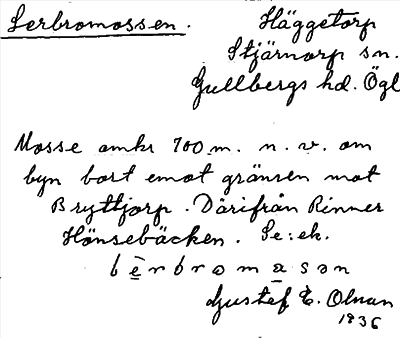 Lerbromossen. Häggetorp
Stjärnorp sn.
Gullbergs hd. Ögl
Mosse omkr 700 m. n. v. om
byn bort emot gränsen mot
Bryttjorp. Därifrån Rinner
Hönsebäcken. Se: ek.
lèrbromasən
Gustaf E. Olman
1936